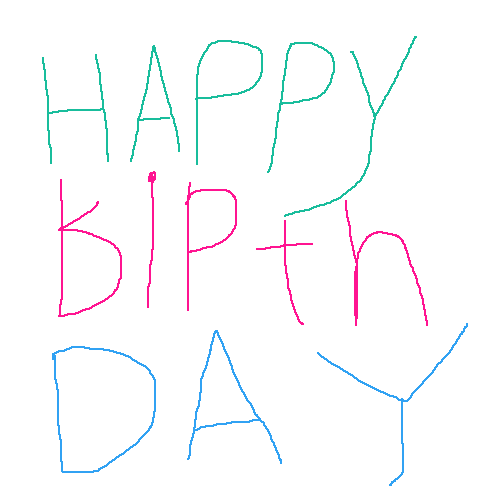 HAPPY
BIPth
DAY